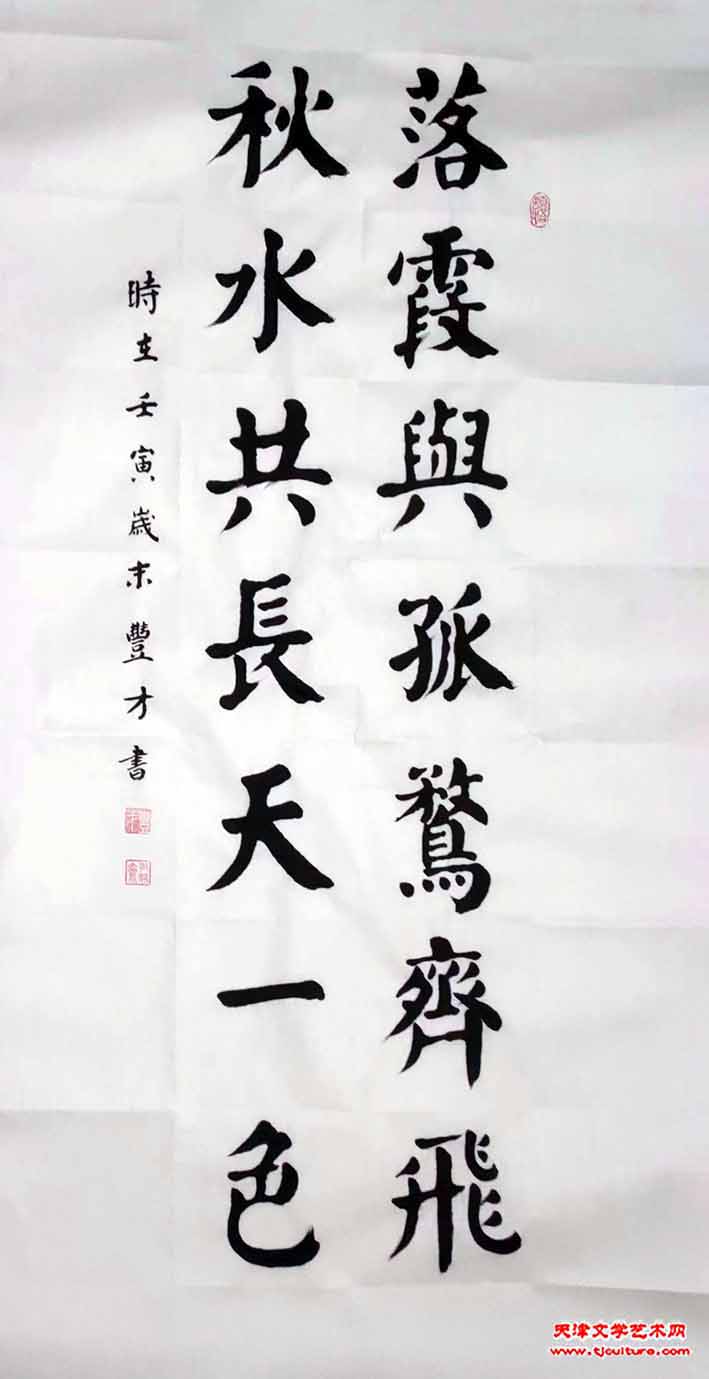 落霞與孤騖齊飛
秋水共長天一色
時在壬寅歲末豐才書
天津文学艺术网
www.tjculture.com